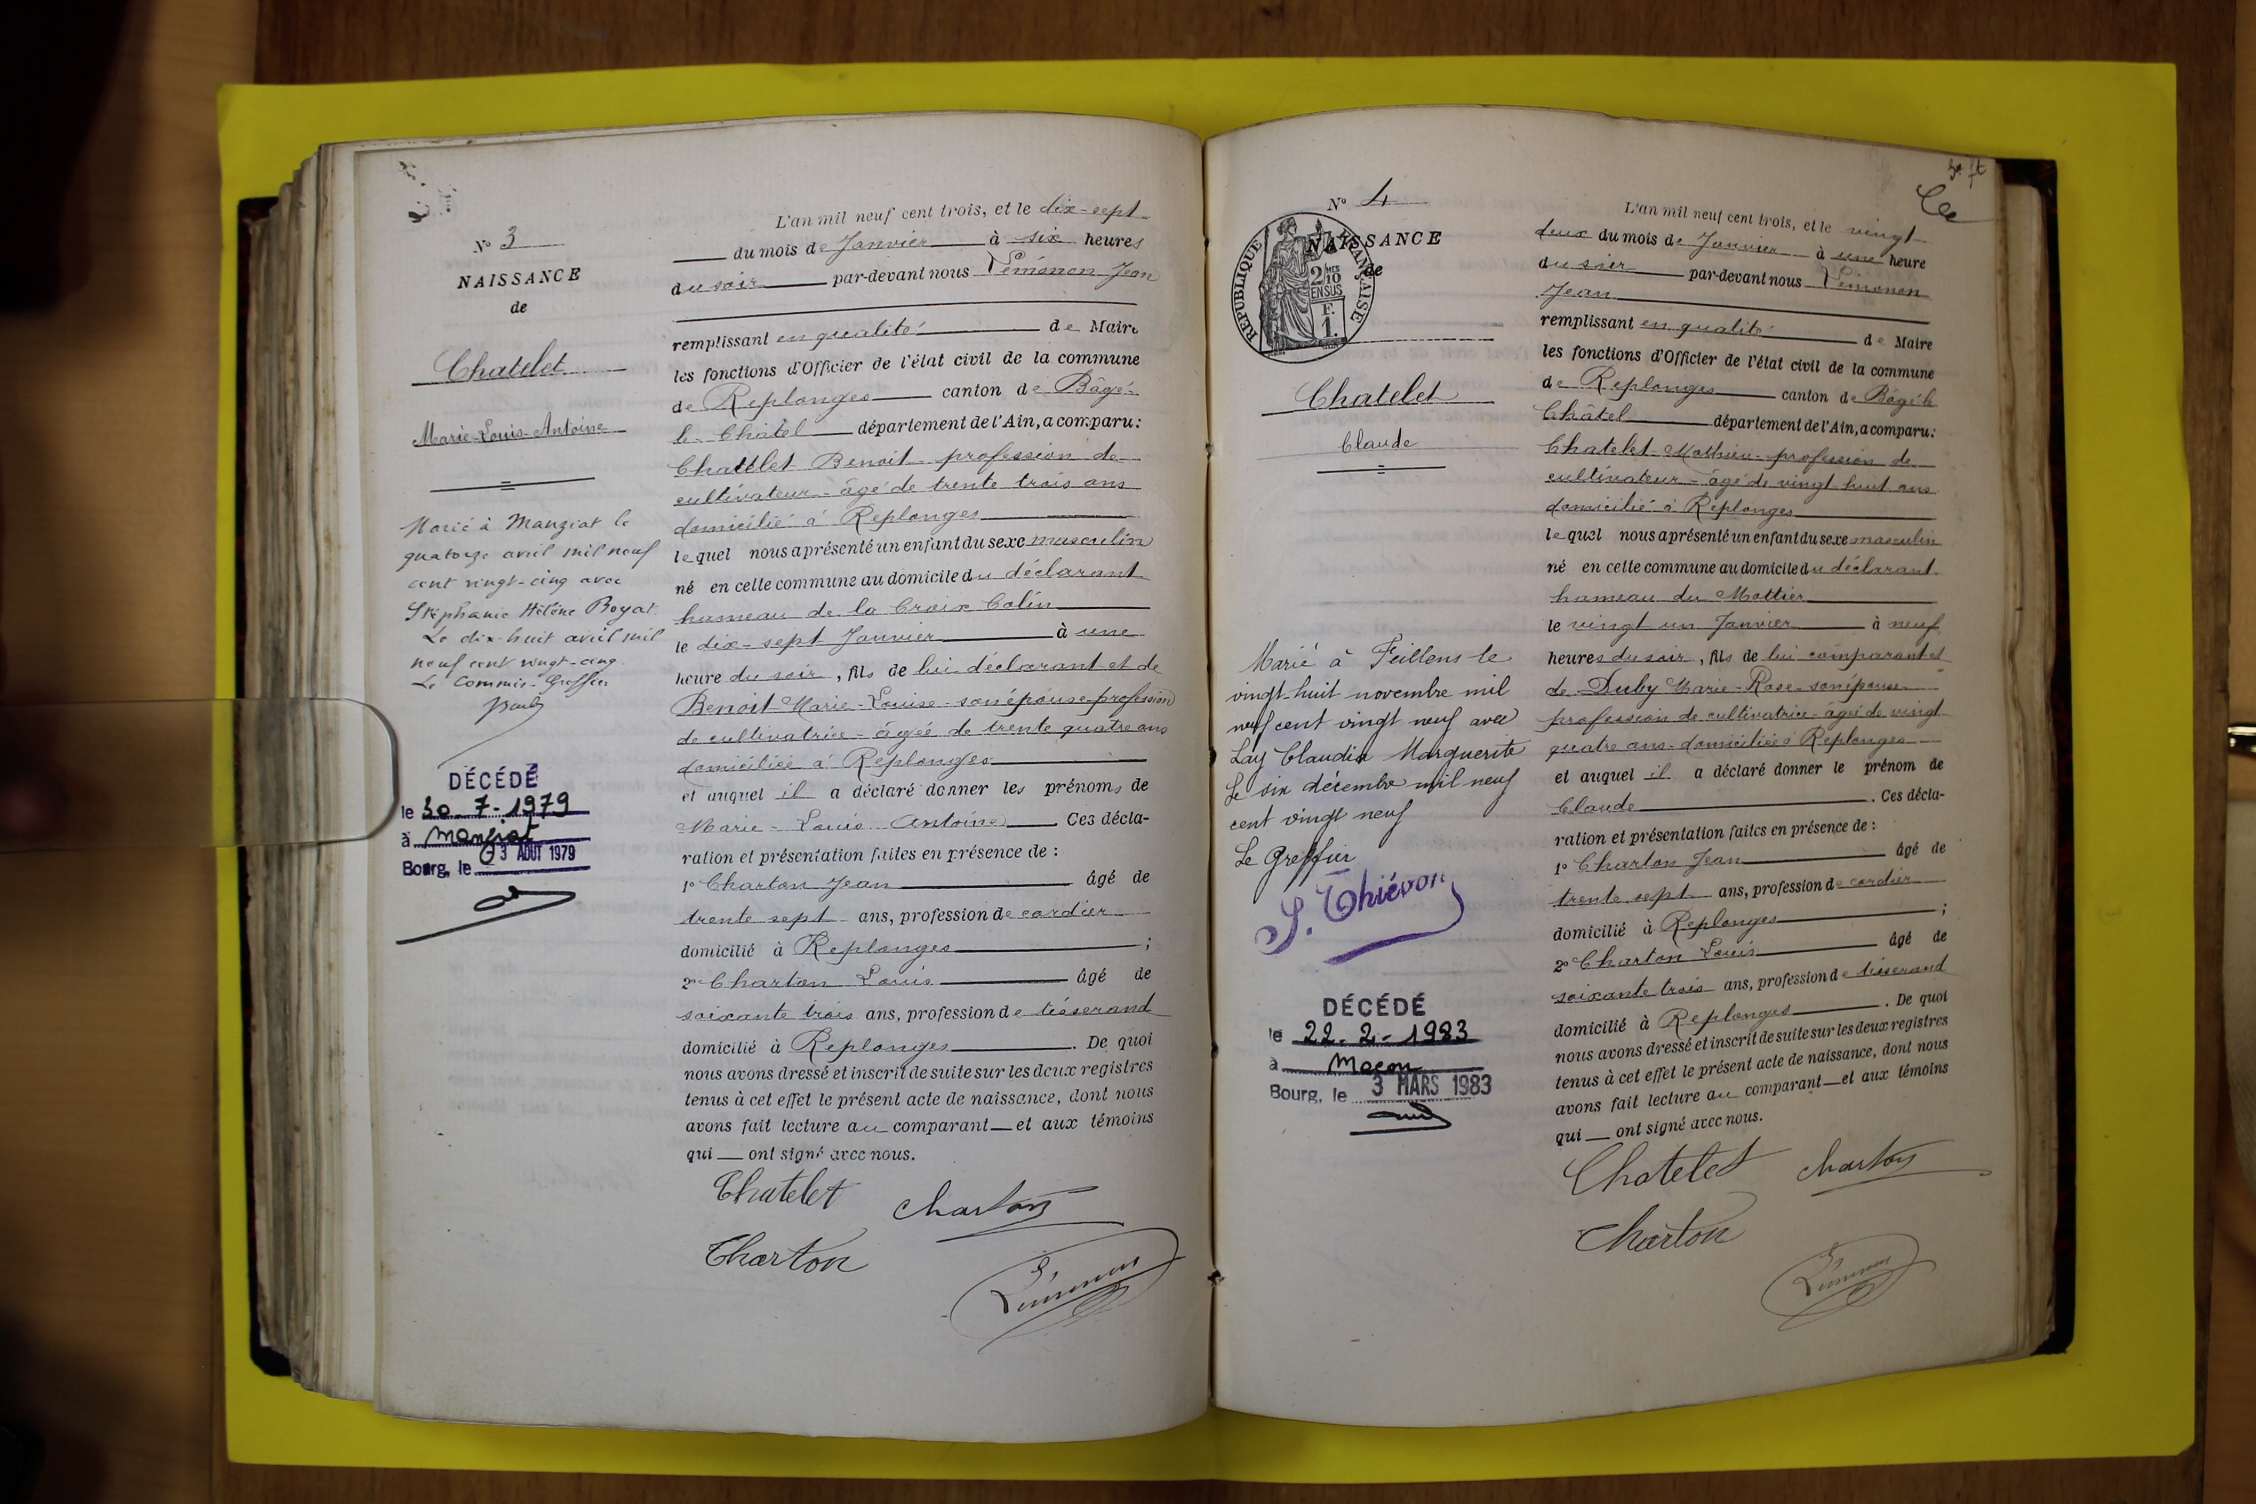 N° 3
NAISSANCE
de
Chatelet
Marie-Louis-Antoine
Marié à Manziat le
quatorze avril mil neuf
cent vingt-cinq avec
Stéphanie Hélène Boyat
Le dix-huit avril mil
neuf cent vingt-cinq
Le Commis-Greffier
DÉCÉDÉ
le 30-7-1979
à Manziat
Bourg, le 3 AOUT 1979
L'an mil neuf cent trois, et le dix-sept
du mois de Janvier à six heures
du soir par-devant nous Lémonon Jean
remplissant en qualité de Maire
les fonctions d'Officier de l'état civil de la commune
de Replonges canton de Bâgé-
le-Châtel département de l'Ain, a comparu:
Chatelet Benoit profession de
cultivateur - âgé de trente trois ans
domicilié à Replonges
lequel nous a présenté un enfant du sexe masculin
né en cette commune au domicile du déclarant
hameau de la Croix Colin
le dix-sept Janvier à une
heure du soir, fils de lui déclarant et de
Benoit Marie-Louise son épouse profession
de cultivatrice - âgée de trente quatre ans
domiciliée à Replonges
et auquel il a déclaré donner les prénoms de
Marie-Louis Antoine Ces décla-
ration et présentation faites en présence de :
1° Charton Jean âgé de
trente sept ans, profession de cordier
domicilié à Replonges ;
2° Charton Louis âgé de
soixante trois ans, profession de tisserand
domicilié à Replonges. De quoi
nous avons dressé et inscrit de suite sur les deux registres
tenus à cet effet le présent acte de naissance, dont nous
avons fait lecture au comparant et aux témoins
qui ont signé avec nous.
Chatelet Charton
Charton Lémonon
N° 4
NAISSANCE
de
RÉPUBLIQUE FRANÇAISE
2/10 EN SUS
F. 1.
Chatelet
Claude
Marié à Feillens le
vingt-huit novembre mil
neuf cent vingt neuf avec
Lay Claudia Marguerite
Le six décembre mil neuf
cent vingt neuf
Le Greffier
S. Thiévon
DÉCÉDÉ
le 22-2-1983
à Macon
Bourg, le 3 MARS 1983
L'an mil neuf cent trois, et le vingt
deux du mois de Janvier à une heure
du soir par-devant nous Lémonon
Jean
remplissant en qualité de Maire
les fonctions d'Officier de l'état civil de la commune
de Replonges canton de Bâgé-le
Châtel département de l'Ain, a comparu:
Chatelet Mathieu profession de
cultivateur - âgé de vingt huit ans
domicilié à Replonges
lequel nous a présenté un enfant du sexe masculin
né en cette commune au domicile du déclarant
hameau du Mottier
le vingt un Janvier à neuf
heures du soir, fils de lui comparant et
de Duby Marie-Rose son épouse
profession de cultivatrice âgée de vingt
quatre ans domiciliée à Replonges
et auquel il a déclaré donner le prénom de
Claude. Ces décla-
ration et présentation faites en présence de :
1° Charton Jean âgé de
trente sept ans, profession de cordier
domicilié à Replonges ;
2° Charton Louis âgé de
soixante trois ans, profession de tisserand
domicilié à Replonges. De quoi
nous avons dressé et inscrit de suite sur les deux registres
tenus à cet effet le présent acte de naissance, dont nous
avons fait lecture au comparant et aux témoins
qui ont signé avec nous.
Chatelet Charton
Charton
Lémonon